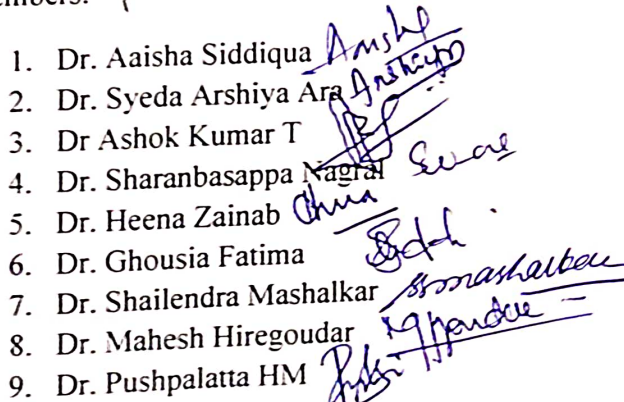 mbers:
1. Dr. Aaisha Siddiqua
2. Dr. Syeda Arshiya Ara Arshiya
3. Dr Ashok Kumar T
4. Dr. Sharanbasappa Nagral
5. Dr. Heena Zainab
6. Dr. Ghousia Fatima
7. Dr. Shailendra Mashalkar
8. Dr. Mahesh Hiregoudar
9. Dr. Pushpalatta HM